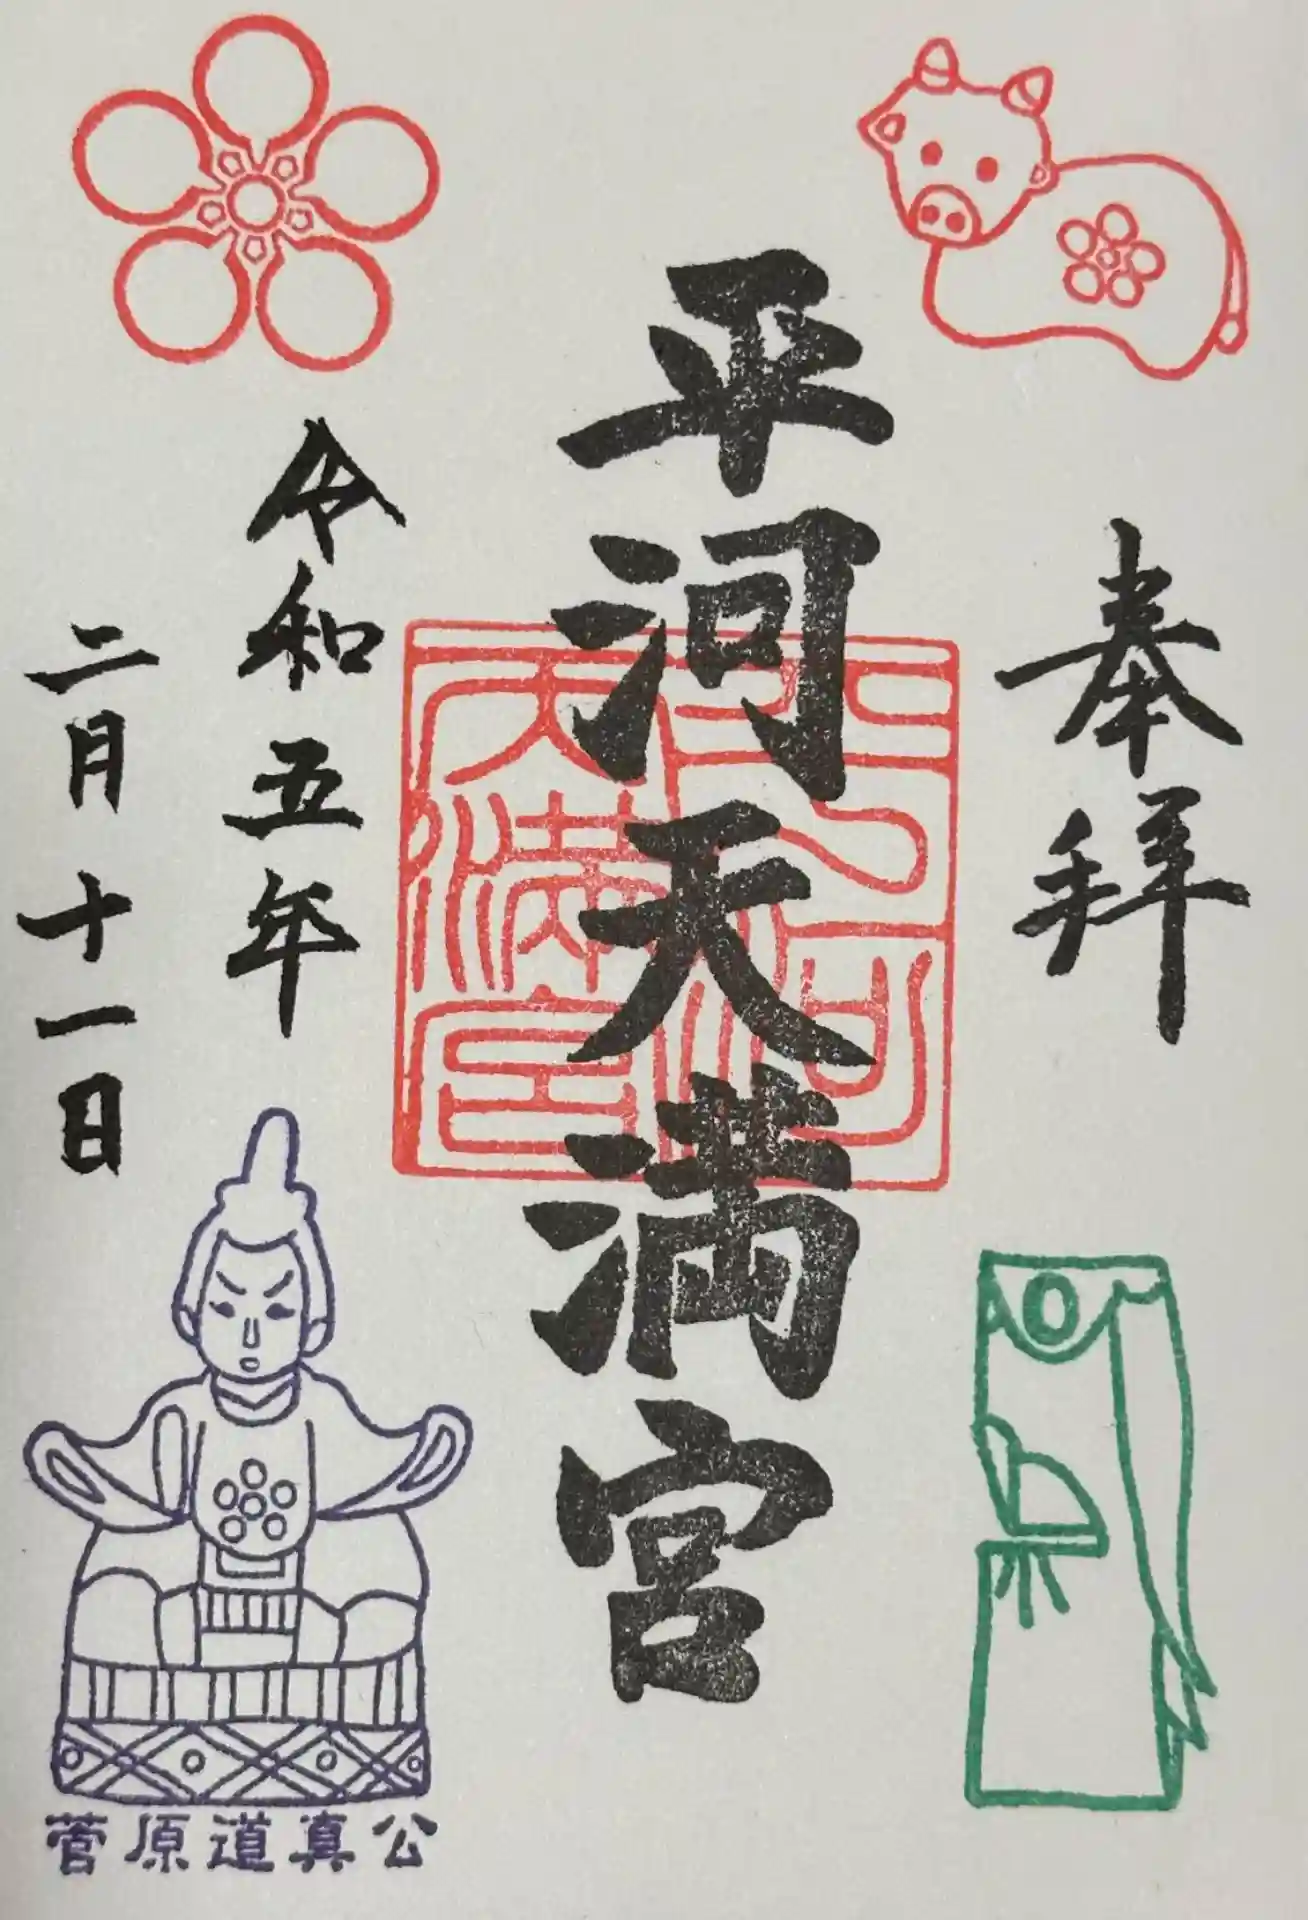 奉拝
平河天満宮
平河天満宮
令和五年
二月十一日
菅原道真公